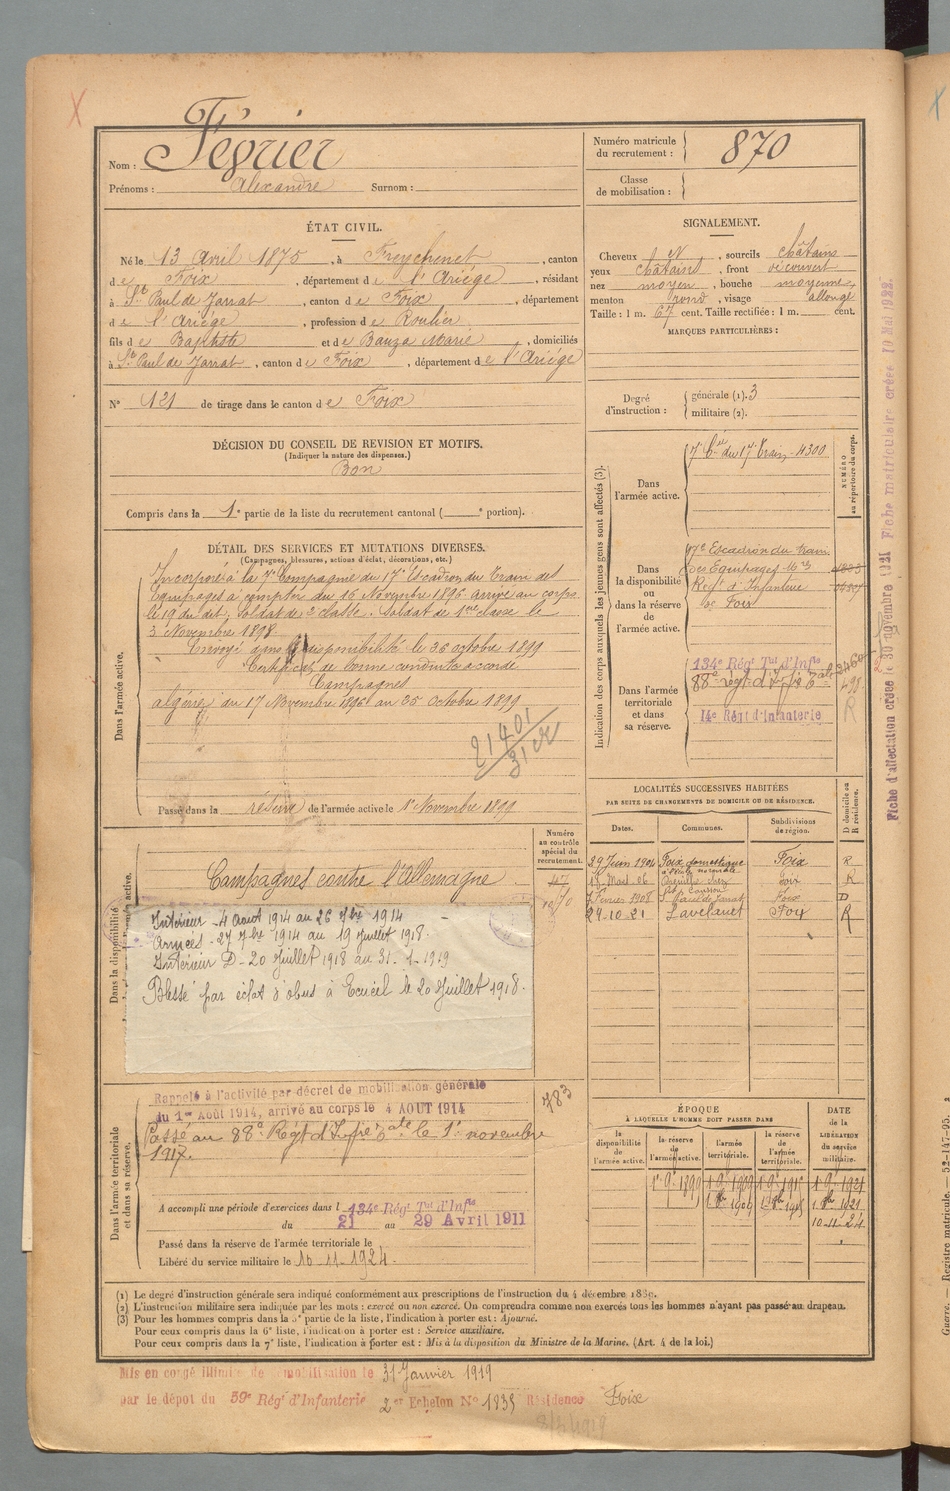 Nom : Fégrier
Prénoms : Alexandre Surnom :
Numéro matricule du recrutement : 870
Classe de mobilisation :
ÉTAT CIVIL.
Né le 13 Avril 1875, à Freychenet, canton
de Foix, département de l'Ariége, résidant
à St Paul de Jarrat, canton de Foix, département
de l'Ariége, profession de Roulier
fils de Baptiste et de Bauza Marie, domiciliés
à St Paul de Jarrat, canton de Foix, département de l'Ariége
N° 121 de tirage dans le canton de Foix
DÉCISION DU CONSEIL DE REVISION ET MOTIFS.
(Indiquer la nature des dispenses.)
Bon
Compris dans la 1e partie de la liste du recrutement cantonal ( e portion).
SIGNALEMENT.
Cheveux N, sourcils châtains
yeux châtains, front découvert
nez moyen, bouche moyenne,
menton rond, visage allongé
Taille : 1 m. 67 cent. Taille rectifiée : 1 m. cent.
MARQUES PARTICULIÈRES :
Degré d'instruction : générale (1). 3
militaire (2).
DÉTAIL DES SERVICES ET MUTATIONS DIVERSES.
(Campagnes, blessures, actions d'éclat, décorations, etc.)
Dans l'armée active.
Incorporé à la 7e Compagnie du 17e Escadron du Train des
Equipages à compter du 16 Novembre 1896. arrivé au corps
le 19 du dit, soldat de 2e classe. Soldat de 1ère classe le
3 Novembre 1898.
Envoyé dans la disponibilité le 30 octobre 1899
Certificat de bonne conduite accordé
Campagnes
algérie du 17 Novembre 1896 au 25 octobre 1899
21401
Passé dans la réserve de l'armée active le 1er Novembre 1899
Indication des corps auxquels les jeunes gens sont affectés (3).
NUMÉRO au répertoire du corps.
Dans l'armée active.
7e Cie du 17e Train 4300
Dans la disponibilité ou dans la réserve de l'armée active.
17e Escadron du train
des Equipages Mres
Regt d'Infanterie
de Foix
Dans l'armée territoriale et dans sa réserve.
134e Régt Tal d'Infie
88e regt d'Infie
14e Régt d'Infanterie
R
LOCALITÉS SUCCESSIVES HABITÉES
PAR SUITE DE CHANGEMENTS DE DOMICILE OU DE RÉSIDENCE.
Dates. Communes. Subdivisions de région. D domicile ou R résidence.
29 Juin 1904 Foix domestique Foix R
à l'école normale
Foix R
7 Février 1908 St Paul de Jarrat Foix D
29-10-21 Lavelanet Foix R
Dans la disponibilité
Numéro au contrôle spécial du recrutement.
Campagnes contre l'Allemagne
Intérieur - 4 août 1914 au 26 7bre 1914
Armées - 27 7bre 1914 au 19 Juillet 1918.
Intérieur D - 20 Juillet 1918 au 31-1-1919
Blessé par éclat d'obus à Ecueil le 20 Juillet 1918.
Dans l'armée territoriale et dans sa réserve.
783
Rappelé à l'activité par décret de mobilisation générale
du 1er Août 1914, arrivé au corps le 4 AOUT 1914
Passé au 88e Regt d'Infie le 1er novembre
1917.
A accompli une période d'exercices dans l 134e Régt Tal d'Infie
du 21 au 29 Avril 1911
Passé dans la réserve de l'armée territoriale le
Libéré du service militaire le 10-11-1924.
ÉPOQUE
À LAQUELLE L'HOMME DOIT PASSER DANS
DATE de la LIBÉRATION du service militaire.
la disponibilité de l'armée active. la réserve de l'armée active. l'armée territoriale. la réserve de l'armée territoriale.
10-11-24
(1) Le degré d'instruction générale sera indiqué conformément aux prescriptions de l'instruction du 4 décembre 1889.
(2) L'instruction militaire sera indiquée par les mots : exercé ou non exercé. On comprendra comme non exercés tous les hommes n'ayant pas passé au drapeau.
(3) Pour les hommes compris dans la 5e partie de la liste, l'indication à porter est : Ajourné.
Pour ceux compris dans la 6e liste, l'indication à porter est : Service auxiliaire.
Pour ceux compris dans la 7e liste, l'indication à porter est : Mis à la disposition du Ministre de la Marine. (Art. 4 de la loi.)
Mis en congé illimité de démobilisation le 31 Janvier 1919
par le dépôt du 59e Régt d'Infanterie 2er Echelon N° 1835 Résidence Foix
Fiche d'affectation créée le 30 novembre 1921 Fiche matriculaire créée 10 Mai 1922.
Guerre. — Registre matricule. — 52-147-95.